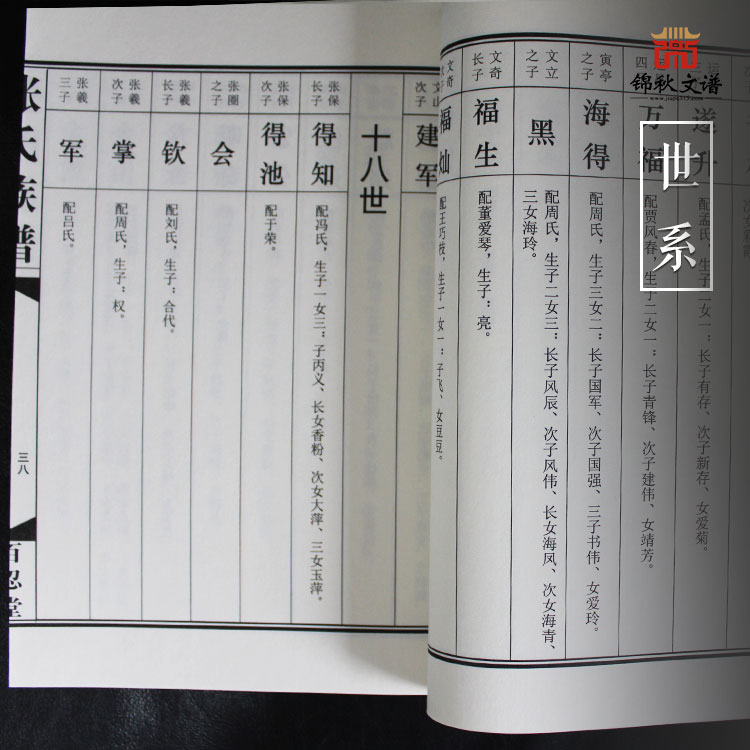 锦秋文谱
世系
遂升
配孟氏，生子二女一：长子有存、次子新存、女爱菊。
四
万福
配贾风春，生子二女一：长子青锋、次子建伟、女靖芳。
寅亭之子
海得
配周氏，生子三女二：长子国军、次子国强、三子书伟、女爱玲。
文立之子
黑
配周氏，生子二女三：长子风辰、次子风伟、长女海凤、次女海青、
三女海玲。
文奇长子
福生
配董爱琴，生子：亮。
文奇
福灿
配王巧枝，生子一女一：子飞、女豆豆。
文山次子
建军
十八世
张保长子
得知
配冯氏，生子一女三：子丙义、长女香粉、次女大萍、三女玉萍。
张保次子
得池
配于荣。
张圈之子
会
张羲长子
钦
配刘氏，生子：合代。
张羲次子
掌
配周氏，生子：权。
张羲三子
军
配吕氏。
张氏族谱
三八
百忍堂